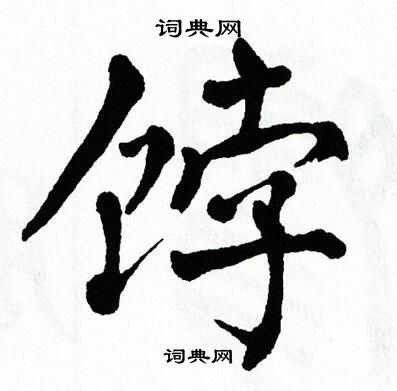 词典网
餑
词典网